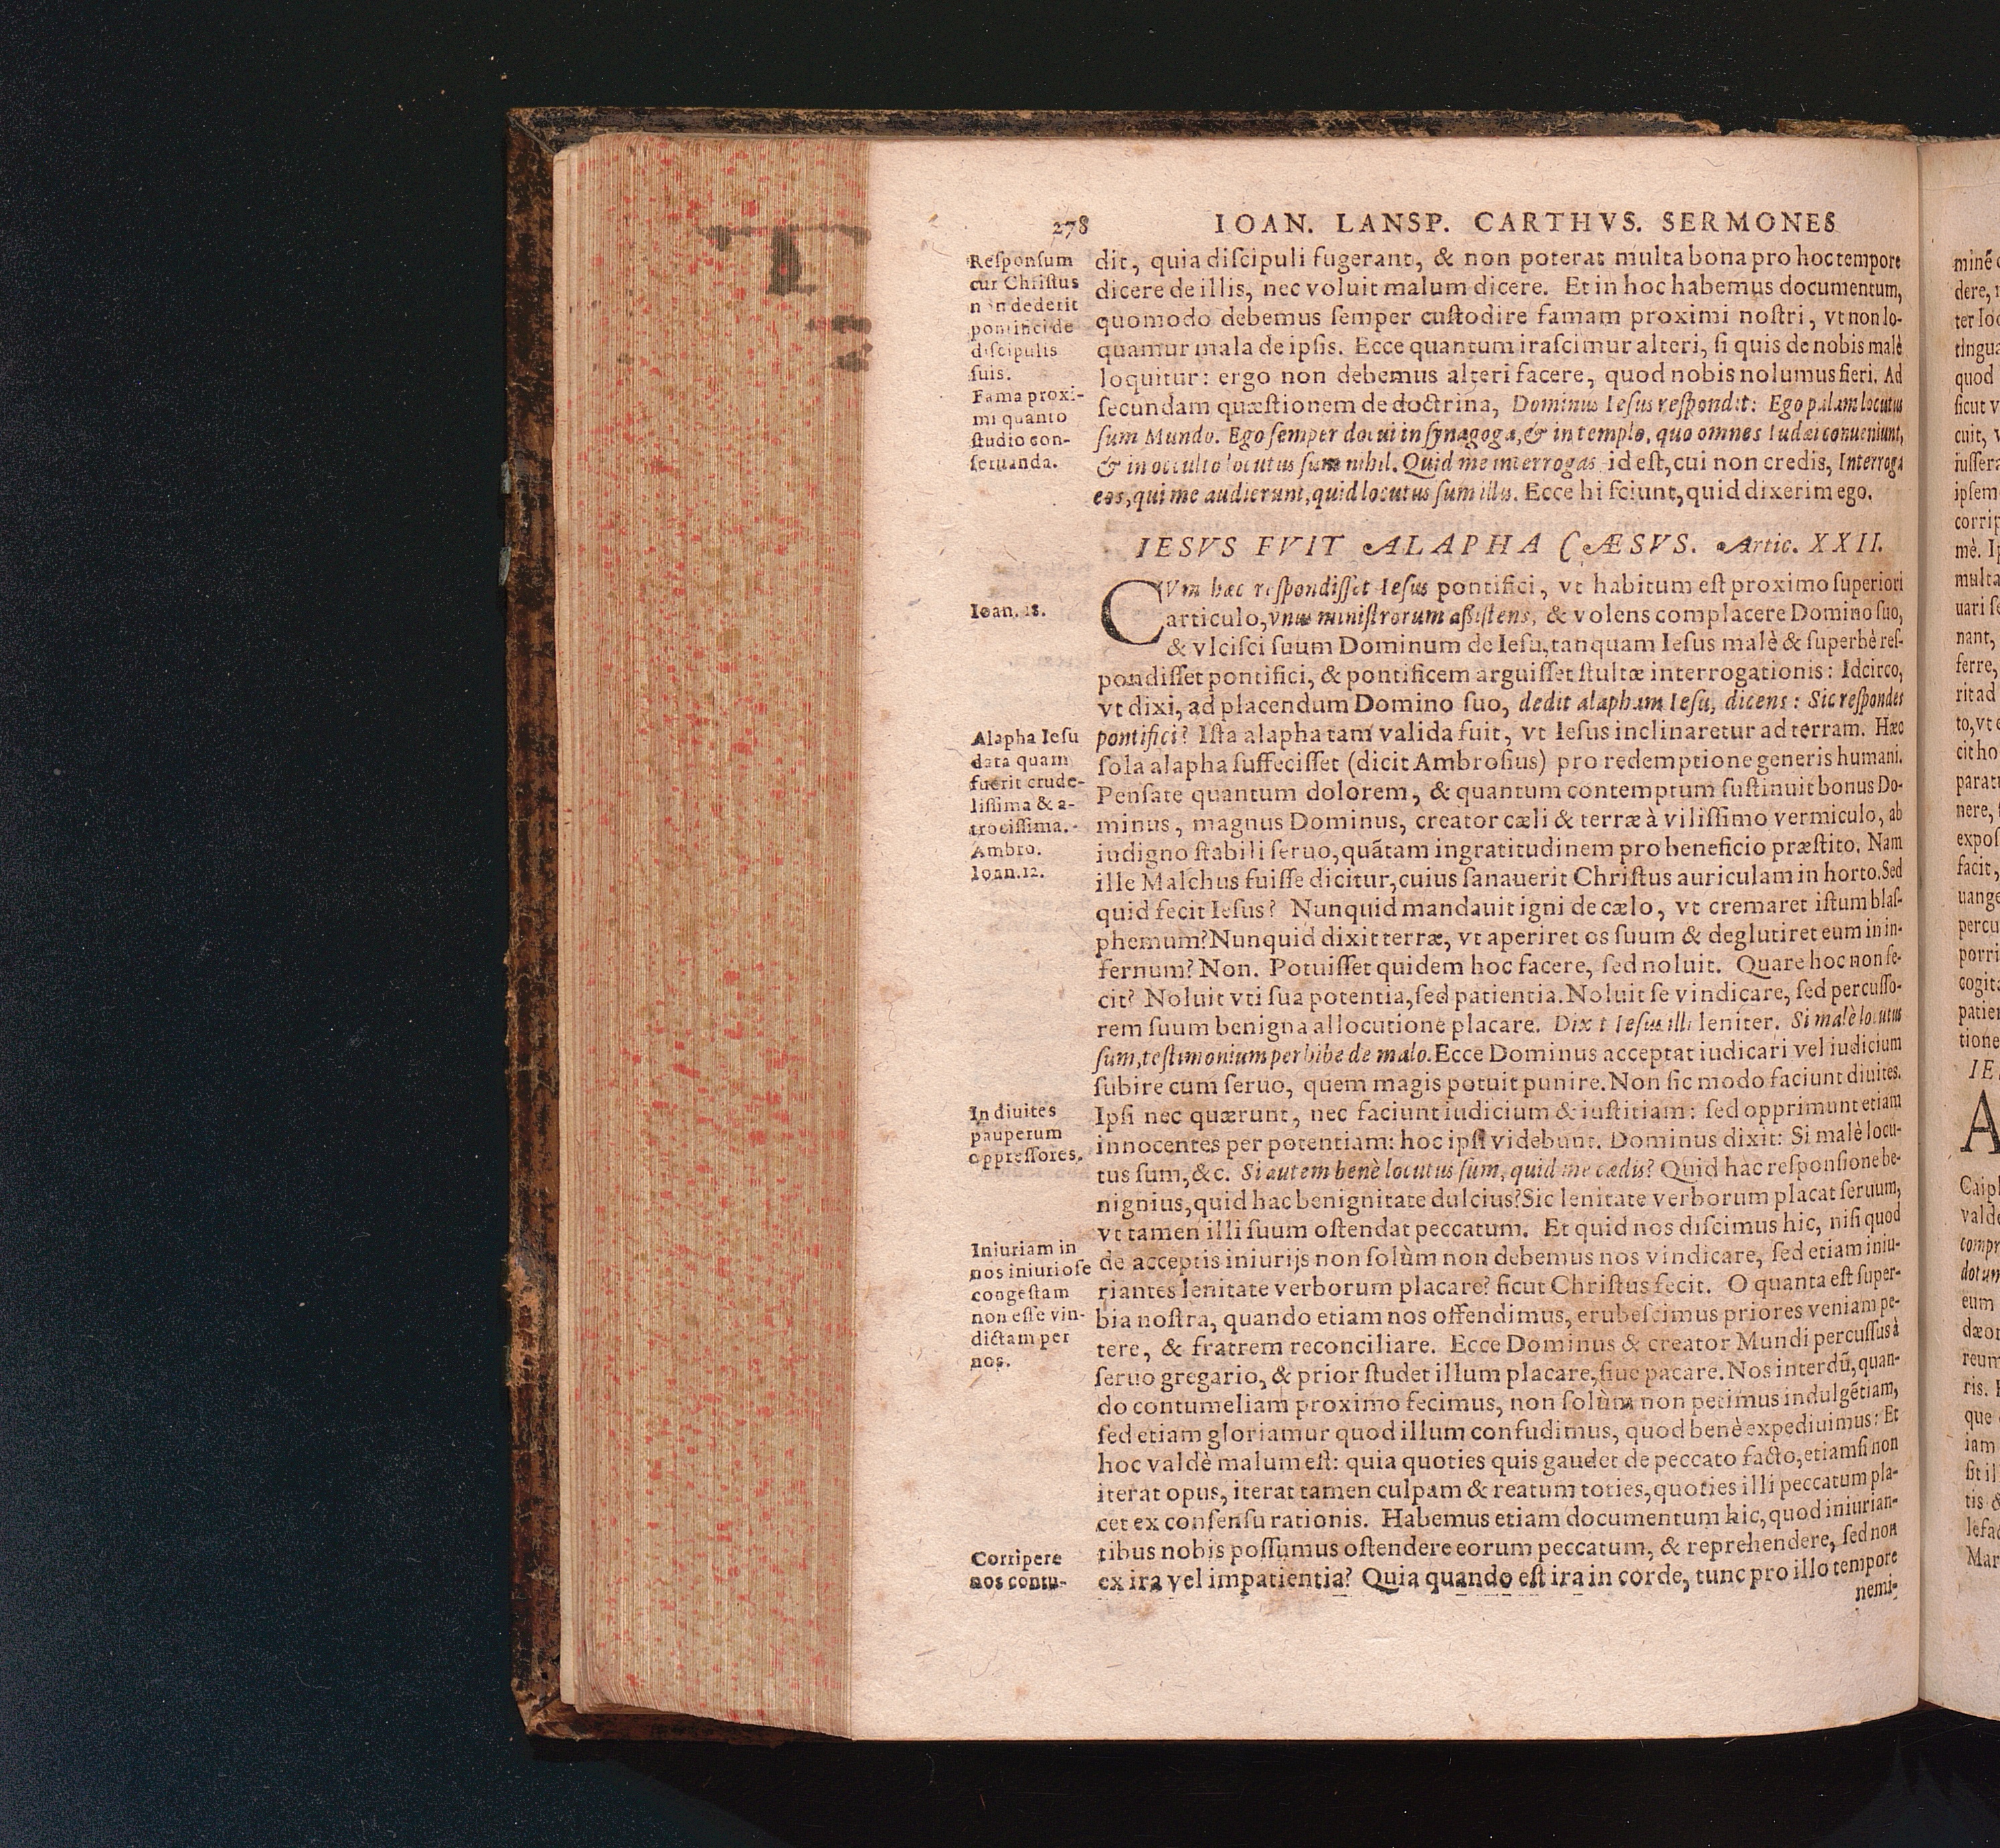 278 IOAN. LANSP. CARTHVS. SERMONES
Reſponſum
cur Chriſtus
non dederit
pontifici de
diſcipulis
ſuis.
Fama proxi-
mi quanto
ſtudio con-
ſeruanda.
dit, quia diſcipuli fugerant, & non poterat multa bona pro hoc tempore
dicere de illis, nec voluit malum dicere. Et in hoc habemus documentum,
quomodo debemus ſemper cuſtodire famam proximi noſtri, vt non lo-
quamur mala de ipſis. Ecce quantum iraſcimur alteri, ſi quis de nobis malè
loquitur: ergo non debemus alteri facere, quod nobis nolumus fieri. Ad
ſecundam quæſtionem de doctrina, Dominus Ieſus reſpondit: Ego palam locutus
ſum Mundo. Ego ſemper docui in ſynagoga, & in templo, quo omnes Iudæi conueniunt,
& in occulto locutus ſum nihil. Quid me interrogas id eſt, cui non credis, Interroga
eos, qui me audierunt, quid locutus ſum illis. Ecce hi ſciunt, quid dixerim ego.
IESVS FVIT ALAPHA CÆSVS. Artic. XXII.
Ioan. 18.
CVm hæc reſpondiſſet Ieſus pontifici, vt habitum eſt proximo ſuperiori
articulo, vnus miniſtrorum aſsiſtens, & volens complacere Domino ſuo,
& vlciſci ſuum Dominum de Ieſu, tanquam Ieſus malè & ſuperbè reſ-
pondiſſet pontifici, & pontificem arguiſſet ſtultæ interrogationis: Idcirco,
vt dixi, ad placendum Domino ſuo, dedit alapham Ieſu, dicens: Sic reſpondes
Alapha Ieſu
data quam
fuerit crude-
liſſima & a-
trociſſima.
Ambro.
Ioan. 12.
pontifici? Iſta alapha tam valida fuit, vt Ieſus inclinaretur ad terram. Hæc
ſola alapha ſuffeciſſet (dicit Ambroſius) pro redemptione generis humani.
Penſate quantum dolorem, & quantum contemptum ſuſtinuit bonus Do-
minus, magnus Dominus, creator cæli & terræ à viliſſimo vermiculo, ab
indigno ſtabili ſeruo, quãtam ingratitudinem pro beneficio præſtito. Nam
ille Malchus fuiſſe dicitur, cuius ſanauerit Chriſtus auriculam in horto. Sed
quid fecit Ieſus? Nunquid mandauit igni de cælo, vt cremaret iſtum blaſ-
phemum? Nunquid dixit terræ, vt aperiret os ſuum & deglutiret eum in in-
fernum? Non. Potuiſſet quidem hoc facere, ſed noluit. Quare hoc non fe-
cit? Noluit vti ſua potentia, ſed patientia. Noluit ſe vindicare, ſed percuſſo-
rem ſuum benigna allocutione placare. Dixit Ieſus illi leniter. Si malè locutus
ſum, teſtimonium perhibe de malo. Ecce Dominus acceptat iudicari vel iudicium
ſubire cum ſeruo, quem magis potuit punire. Non ſic modo faciunt diuites.
In diuites
pauperum
oppreſſores.
Ipſi nec quærunt, nec faciunt iudicium & iuſtitiam: ſed opprimunt etiam
innocentes per potentiam: hoc ipſi videbunt. Dominus dixit: Si malè locu-
tus ſum, &c. Si autem benè locutus ſum, quid me cædis? Quid hac reſponſione be-
nignius, quid hac benignitate dulcius? Sic lenitate verborum placat ſeruum,
vt tamen illi ſuum oſtendat peccatum. Et quid nos diſcimus hic, niſi quod
Iniuriam in
nos iniurioſe
congeſtam
non eſſe vin-
dictam per
nos.
de acceptis iniurijs non ſolùm non debemus nos vindicare, ſed etiam iniu-
riantes lenitate verborum placare? ſicut Chriſtus fecit. O quanta eſt ſuper-
bia noſtra, quando etiam nos offendimus, erubeſcimus priores veniam pe-
tere, & fratrem reconciliare. Ecce Dominus & creator Mundi percuſſus à
ſeruo gregario, & prior ſtudet illum placare, ſiue pacare. Nos interdũ, quan-
do contumeliam proximo fecimus, non ſolùm non petimus indulgẽtiam,
ſed etiam gloriamur quod illum confudimus, quod benè expediuimus: Et
hoc valdè malum eſt: quia quoties quis gaudet de peccato facto, etiamſi non
iterat opus, iterat tamen culpam & reatum toties, quoties illi peccatum pla-
cet ex conſenſu rationis. Habemus etiam documentum hic, quod iniurian-
Corripere
nos contu-
tibus nobis poſſumus oſtendere eorum peccatum, & reprehendere, ſed non
ex ira vel impatientia? Quia quando eſt ira in corde, tunc pro illo tempore
nemi-